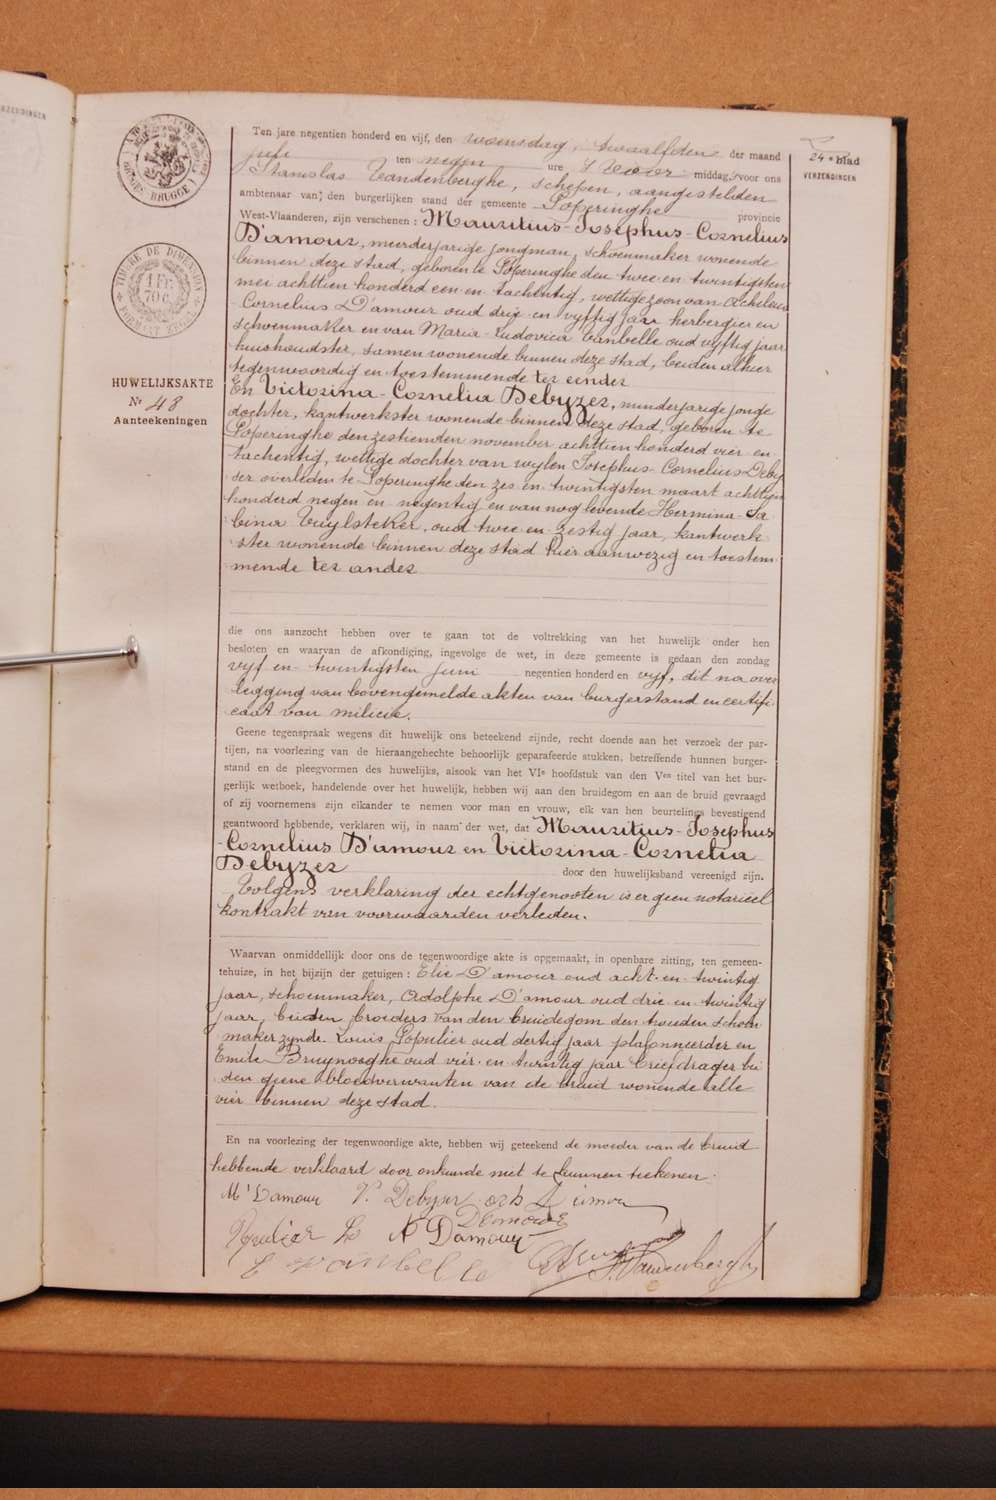 RZENDINGEN
BRUGGE BRUGES
TIMBRE DE DIMENSION
1 FR.
70 c.
FORMAT ZEGEL
HUWELIJKSAKTE
Nr 48
Aanteekeningen
24e blad
VERZENDINGEN
Ten jare negentien honderd en vijf, den woensdag, twaalfden der maand
juli ten negen ure 's Voor middag, voor ons
Stanislas Vandenberghe, schepen, aangestelden
ambtenaar van den burgerlijken stand der gemeente Poperinghe provincie
West-Vlaanderen, zijn verschenen : Mauritius-Josephus-Cornelius
D'amour, meerderjarige jongman, schoenmaker wonende
binnen deze stad, geboren te Poperinghe den twee en twintigsten
mei achttien honderd een en tachentig, wettige zoon van
Cornelius D'amour oud drie en vyftig jaar herbergier en
schoenmaker en van Maria-Ludovica Vanbelle oud vyftig jaar
huishoudster, samen wonende binnen deze stad, beiden alhier
tegenwoordig en toestemmende ter eender
En Victorina-Cornelia Debyzer, minderjarige jonge
dochter, kantwerkster wonende binnen deze stad, geboren te
Poperinghe den zestienden november achttien honderd vier en
tachentig, wettige dochter van wylen Josephus-Cornelius Deby
zer overleden te Poperinghe den zes en twintigsten maart achttien
honderd negen en negentig en van nog levende Hermina-Sa
bina Vuylsteker, oud twee en zestig jaar, kantwerk-
ster wonende binnen deze stad hier aanwezig en toestem-
mende ter ander
die ons aanzocht hebben over te gaan tot de voltrekking van het huwelijk onder hen
besloten en waarvan de afkondiging, ingevolge de wet, in deze gemeente is gedaan den zondag
vijf en twintigsten juni negentien honderd en vijf, dit na over
legging van bovengemelde akten van burgerstand en certifi
caat van milicie.
Geene tegenspraak wegens dit huwelijk ons beteekend zijnde, recht doende aan het verzoek der par-
tijen, na voorlezing van de hieraangehechte behoorlijk geparafeerde stukken, betreffende hunnen burger-
stand en de pleegvormen des huwelijks, alsook van het VIe hoofdstuk van den Ven titel van het bur-
gerlijk wetboek, handelende over het huwelijk, hebben wij aan den bruidegom en aan de bruid gevraagd
of zij voornemens zijn elkander te nemen voor man en vrouw, elk van hen beurtelings bevestigend
geantwoord hebbende, verklaren wij, in naam der wet, dat Mauritius-Josephus
-Cornelius D'amour en Victorina-Cornelia
Debyzer door den huwelijksband vereenigd zijn.
Volgens verklaring der echtgenooten is er geen notariëel
kontrakt van voorwaarden verleden.
Waarvan onmiddellijk door ons de tegenwoordige akte is opgemaakt, in openbare zitting, ten gemeen-
tehuize, in het bijzijn der getuigen : Elie D'amour oud acht en twintig
jaar, schoenmaker, Adolphe D'amour oud drie en twintig
jaar, beiden broeders van den bruidegom den tweeden schoen
maker zynde. Louis Populier oud dertig jaar plafonneerder en
Emile Bruynooghe oud vier en twintig jaar briefdrager bei
den geene bloedverwanten van de bruid wonende alle
vier binnen deze stad.
En na voorlezing der tegenwoordige akte, hebben wij geteekend de moeder van de bruid
hebbende verklaard door onkunde niet te kunnen teekenen.
M. Damour V. Debyser
Populier L. A Damour
E Vanbelle S. Vandenberghe